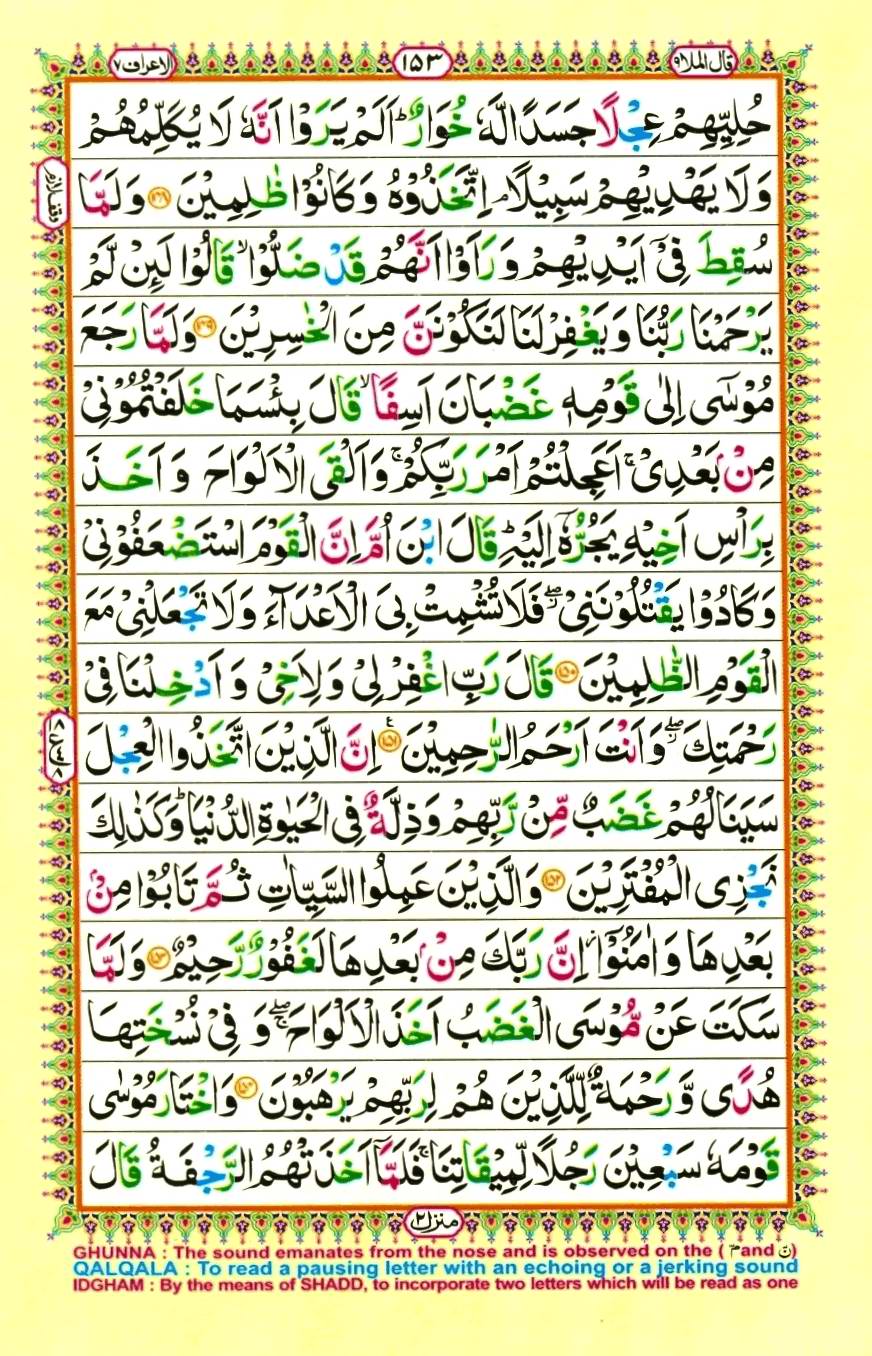 الاعراف ٧ ١٥٣ قال الملا ٩
حُلِيِّهِمْ عِجْلًا جَسَدًا لَّهٗ خُوَارٌ ؕ اَلَمْ يَرَوْا اَنَّهٗ لَا يُكَلِّمُهُمْ
وَلَا يَهْدِيْهِمْ سَبِيْلًا ۘ اِتَّخَذُوْهُ وَكَانُوْا ظٰلِمِيْنَ ۝١٤٨ وَلَمَّا
سُقِطَ فِيْۤ اَيْدِيْهِمْ وَرَاَوْا اَنَّهُمْ قَدْ ضَلُّوْا ۙ قَالُوْا لَئِنْ لَّمْ
يَرْحَمْنَا رَبُّنَا وَيَغْفِرْ لَنَا لَنَكُوْنَنَّ مِنَ الْخٰسِرِيْنَ ۝١٤٩ وَلَمَّا رَجَعَ
مُوْسٰۤى اِلٰى قَوْمِهٖ غَضْبَانَ اَسِفًا ۙ قَالَ بِئْسَمَا خَلَفْتُمُوْنِيْ
مِنْۢ بَعْدِيْ ۚ اَعَجِلْتُمْ اَمْرَ رَبِّكُمْ ۚ وَاَلْقَى الْاَلْوَاحَ وَاَخَذَ
بِرَاْسِ اَخِيْهِ يَجُرُّهٗۤ اِلَيْهِ ؕ قَالَ ابْنَ اُمَّ اِنَّ الْقَوْمَ اسْتَضْعَفُوْنِيْ
وَكَادُوْا يَقْتُلُوْنَنِيْ ۖ فَلَا تُشْمِتْ بِيَ الْاَعْدَآءَ وَلَا تَجْعَلْنِيْ مَعَ
الْقَوْمِ الظّٰلِمِيْنَ ۝١٥٠ قَالَ رَبِّ اغْفِرْ لِيْ وَلِاَخِيْ وَاَدْخِلْنَا فِيْ
رَحْمَتِكَ ۖ وَاَنْتَ اَرْحَمُ الرّٰحِمِيْنَ ۝١٥١ اِنَّ الَّذِيْنَ اتَّخَذُوا الْعِجْلَ
سَيَنَالُهُمْ غَضَبٌ مِّنْ رَّبِّهِمْ وَذِلَّةٌ فِي الْحَيٰوةِ الدُّنْيَا ؕ وَكَذٰلِكَ
نَجْزِي الْمُفْتَرِيْنَ ۝١٥٢ وَالَّذِيْنَ عَمِلُوا السَّيِّاٰتِ ثُمَّ تَابُوْا مِنْۢ
بَعْدِهَا وَاٰمَنُوْۤا ۫ اِنَّ رَبَّكَ مِنْۢ بَعْدِهَا لَغَفُوْرٌ رَّحِيْمٌ ۝١٥٣ وَلَمَّا
سَكَتَ عَنْ مُّوْسَى الْغَضَبُ اَخَذَ الْاَلْوَاحَ ۖۚ وَفِيْ نُسْخَتِهَا
هُدًى وَّرَحْمَةٌ لِّلَّذِيْنَ هُمْ لِرَبِّهِمْ يَرْهَبُوْنَ ۝١٥٤ وَاخْتَارَ مُوْسٰى
قَوْمَهٗ سَبْعِيْنَ رَجُلًا لِّمِيْقَاتِنَا ۚ فَلَمَّاۤ اَخَذَتْهُمُ الرَّجْفَةُ قَالَ
منزل ٢
GHUNNA : The sound emanates from the nose and is observed on the ( مّ and نّ)
QALQALA : To read a pausing letter with an echoing or a jerking sound
IDGHAM : By the means of SHADD, to incorporate two letters which will be read as one